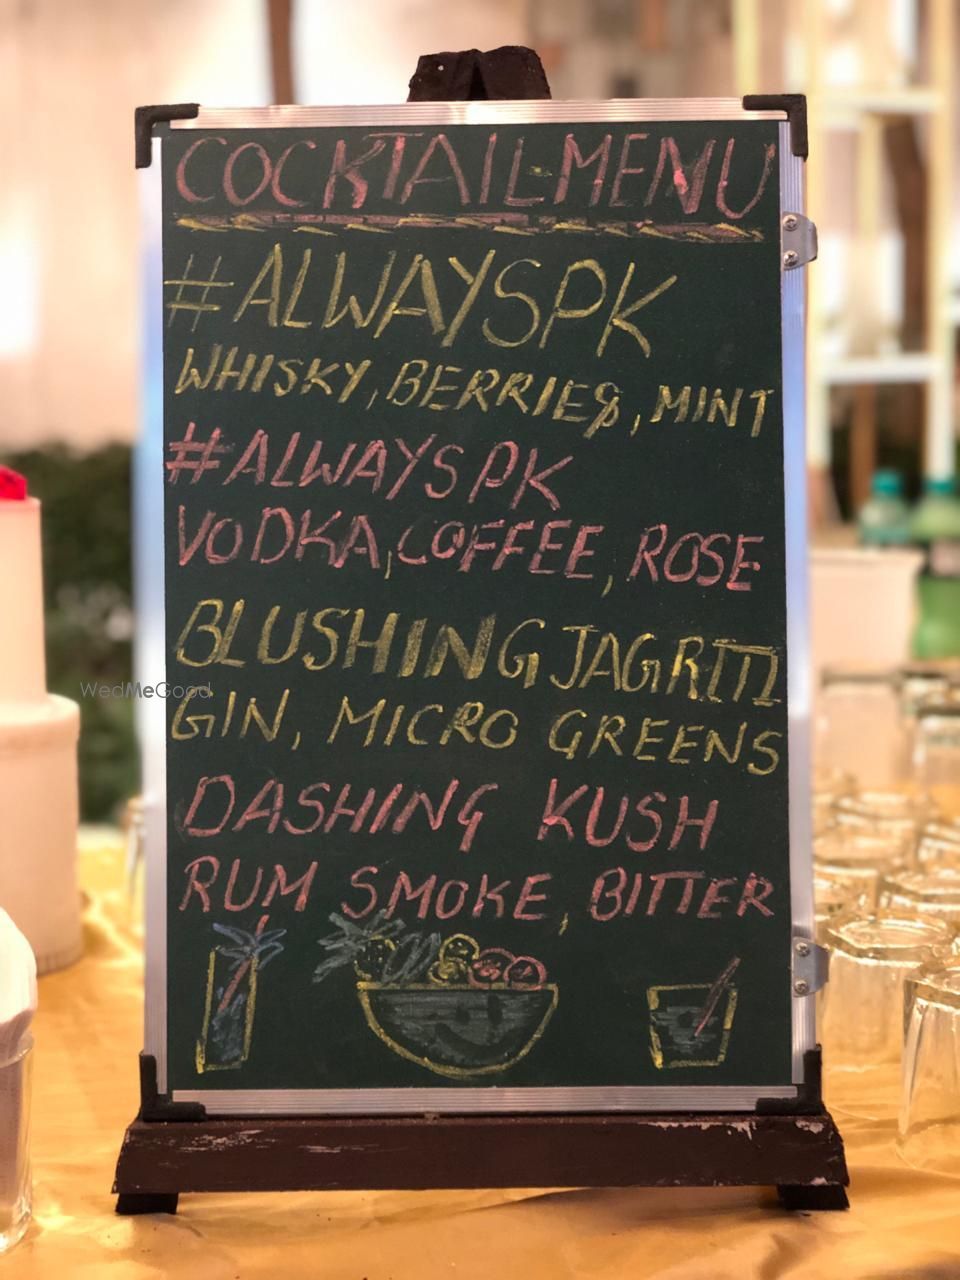 COCKTAIL-MENU
#ALWAYSPK
WHISKY, BERRIES, MINT
#ALWAYSPK
VODKA, COFFEE, ROSE
BLUSHING JAGRITI
WedMeGood
GIN, MICRO GREENS
DASHING KUSH
RUM SMOKE, BITTER